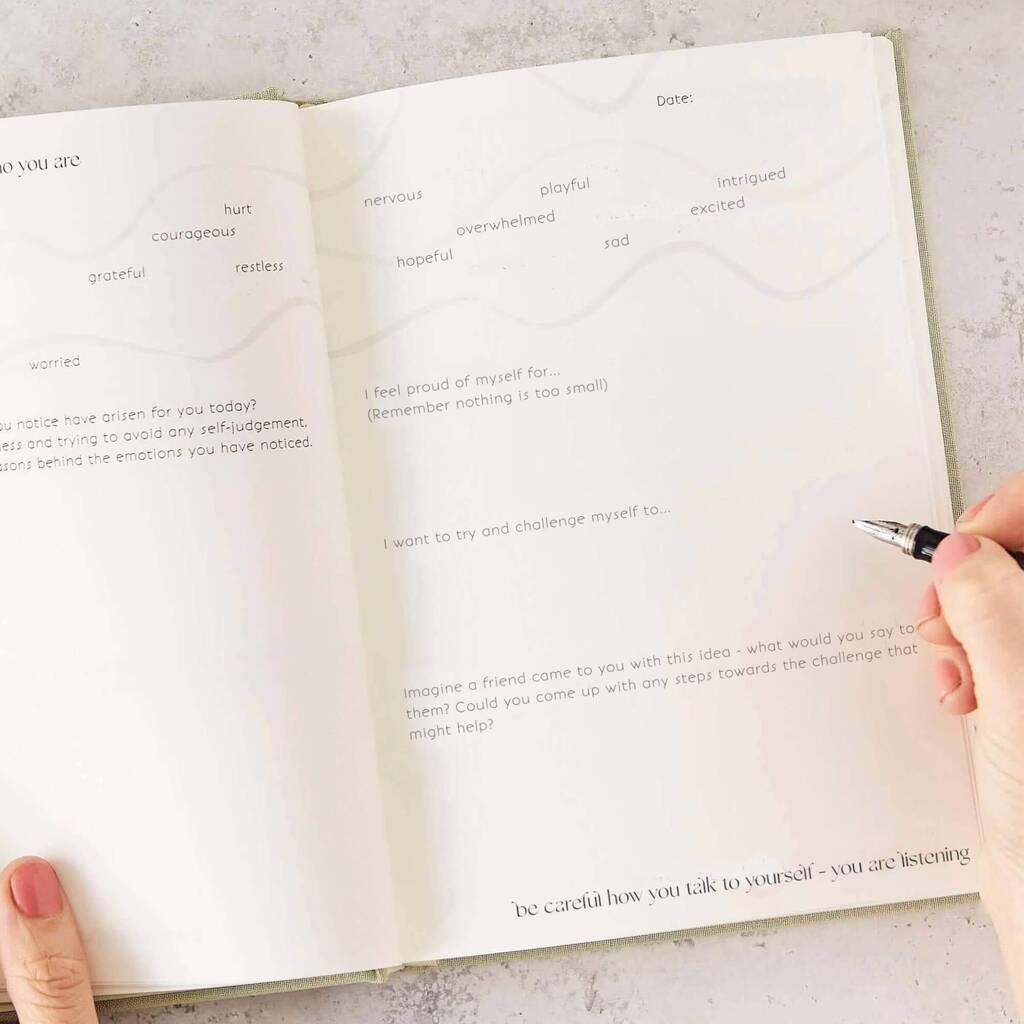 o you are
hurt
courageous
grateful restless
worried
you notice have arisen for you today?
and trying to avoid any self-judgement,
behind the emotions you have noticed.
Date:
nervous playful intrigued
overwhelmed excited
hopeful sad
I feel proud of myself for...
(Remember nothing is too small)
I want to try and challenge myself to...
Imagine a friend came to you with this idea - what would you say to
them? Could you come up with any steps towards the challenge that
might help?
be careful how you talk to yourself - you are listening